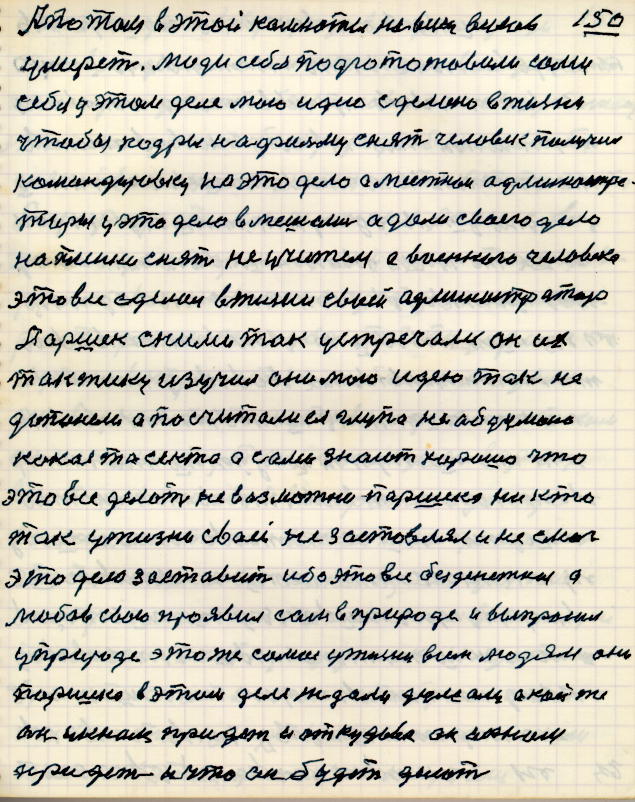 А потом в этой комноти на виш виков 150
умерет. люди себя подгототовили сами
себя у этом деле мою идию сделоно в жизни
чтобы кодры на фильму снят человек получил
командировку на это дело а местнои админостра-
торы у это дело вмешали а дали своего дело
на пленки снят не учител а военного человека
это все сделал в жизни своей админотратор
Паршек сними так устречали он их
тактику изучил они мою идею так не
допонели а посчитали ея глупа не абдумоно
кокая та секта а сами знают хорошо что
это все делот невазможно паршека никто
так у жизни своей не заставлял и не смог
это дело заставит ибо это все безденежки а
любов свою проявил сам в природе и выпросил
у природе это же самое у жизни всем людям они
паршека в этом деле ждали думали а кой же
он к нам придет и откудова он
придет и что он будет делот